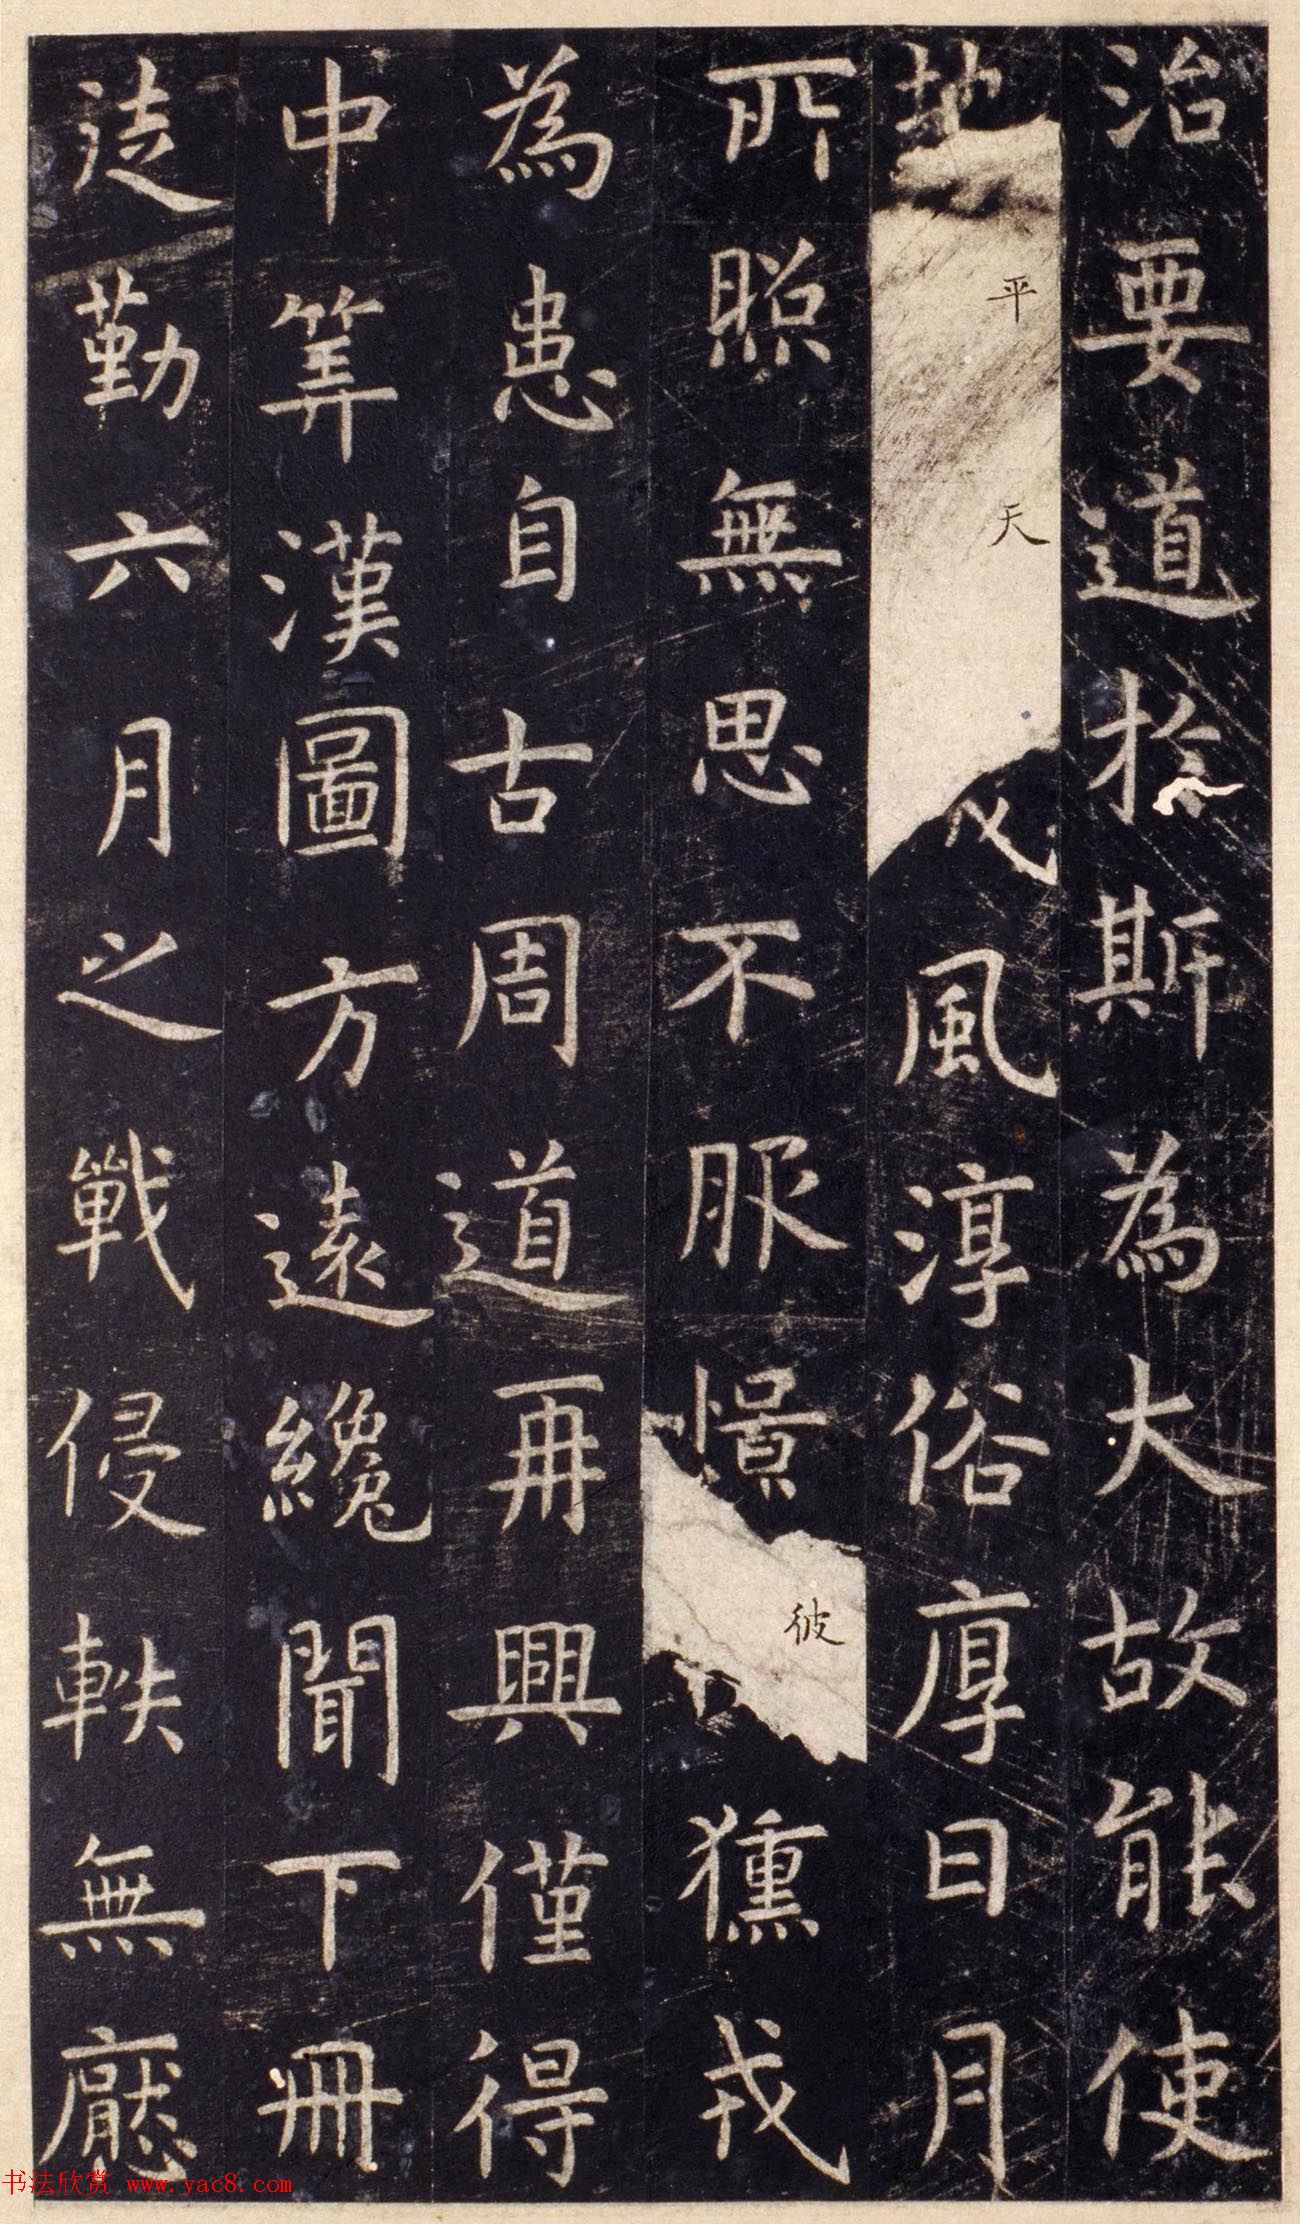 治要道於斯為大故能使
地平天成風淳俗厚日月
所照無思不服憬彼獯戎
為患自古周道再興僅得
中筭漢圖方遠纔聞下冊
徒勤六月之戰侵軼無厭
书法欣赏 www.yac8.com